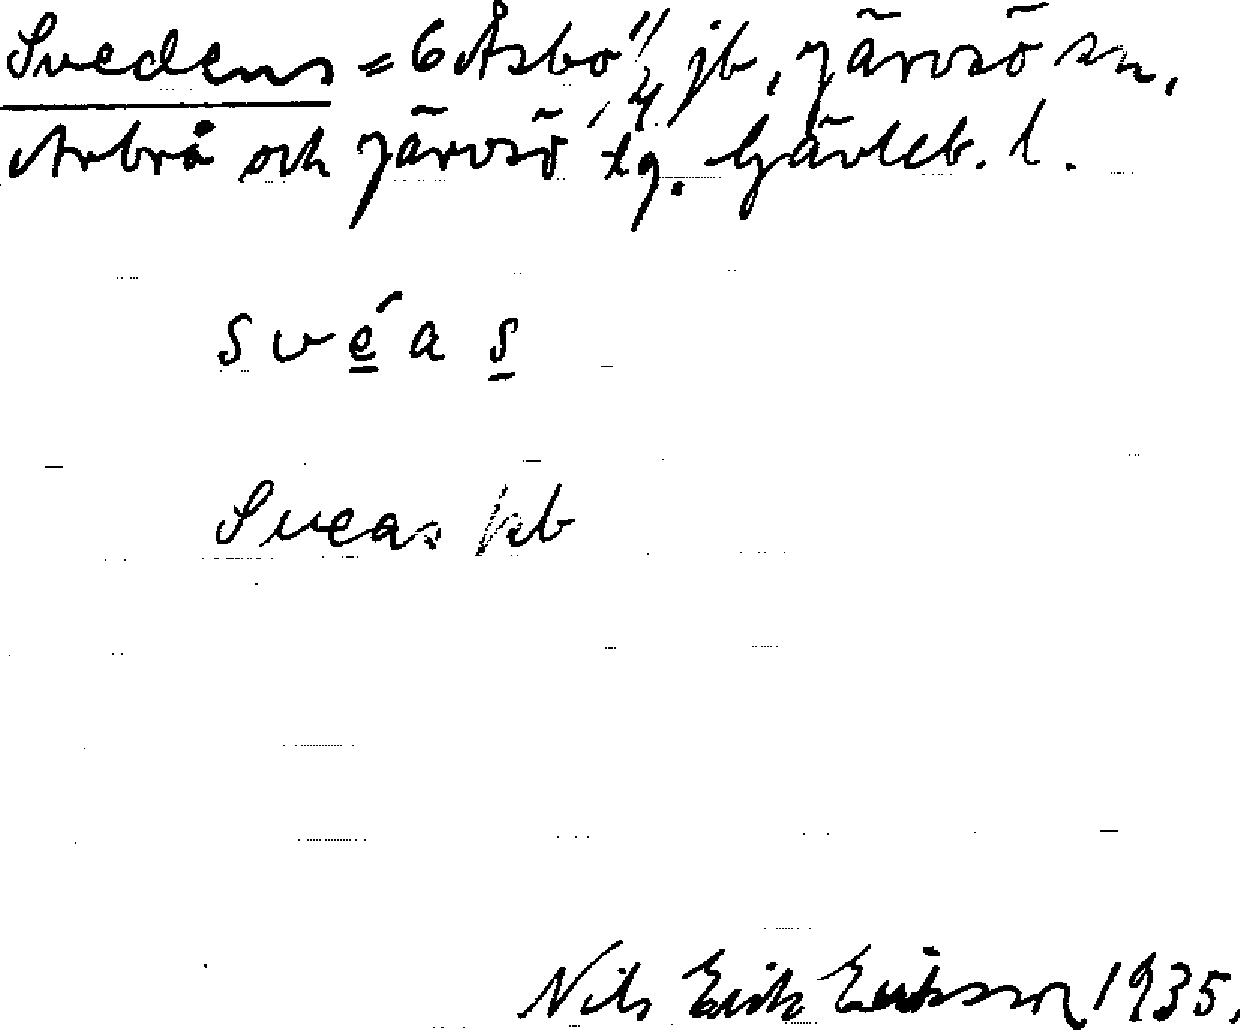 Svedens = 6 Åsbo 11/4 jb, Järvsö sn,
Arbrå och Järvsö tg. Gävleb. l.
svéas
Sveas kb
Nils Erik Eriksson 1935.